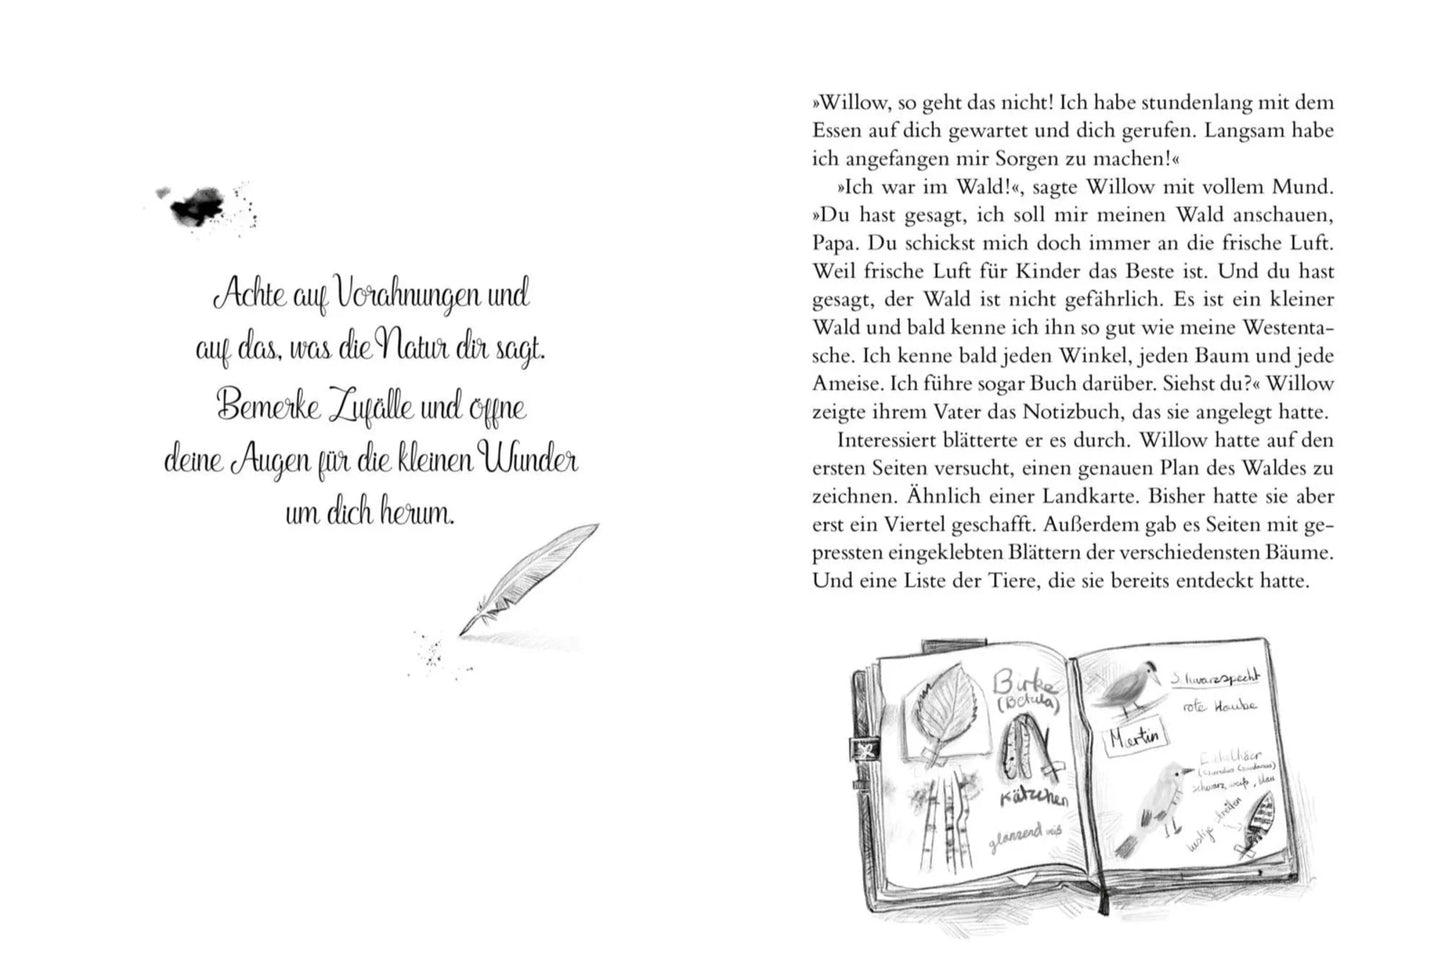 Achte auf Vorahnungen und
auf das, was die Natur dir sagt.
Bemerke Zufälle und öffne
deine Augen für die kleinen Wunder
um dich herum.
»Willow, so geht das nicht! Ich habe stundenlang mit dem
Essen auf dich gewartet und dich gerufen. Langsam habe
ich angefangen mir Sorgen zu machen!«
»Ich war im Wald!«, sagte Willow mit vollem Mund.
»Du hast gesagt, ich soll mir meinen Wald anschauen,
Papa. Du schickst mich doch immer an die frische Luft.
Weil frische Luft für Kinder das Beste ist. Und du hast
gesagt, der Wald ist nicht gefährlich. Es ist ein kleiner
Wald und bald kenne ich ihn so gut wie meine Westenta-
sche. Ich kenne bald jeden Winkel, jeden Baum und jede
Ameise. Ich führe sogar Buch darüber. Siehst du?« Willow
zeigte ihrem Vater das Notizbuch, das sie angelegt hatte.
Interessiert blätterte er es durch. Willow hatte auf den
ersten Seiten versucht, einen genauen Plan des Waldes zu
zeichnen. Ähnlich einer Landkarte. Bisher hatte sie aber
erst ein Viertel geschafft. Außerdem gab es Seiten mit ge-
pressten eingeklebten Blättern der verschiedensten Bäume.
Und eine Liste der Tiere, die sie bereits entdeckt hatte.
Birke
(Betula)
Kätzchen
glänzend weiß
Schwarzspecht
rote Haube
Martin
Eichelhäer
schwarz, weiß, blau
lustige Streifen